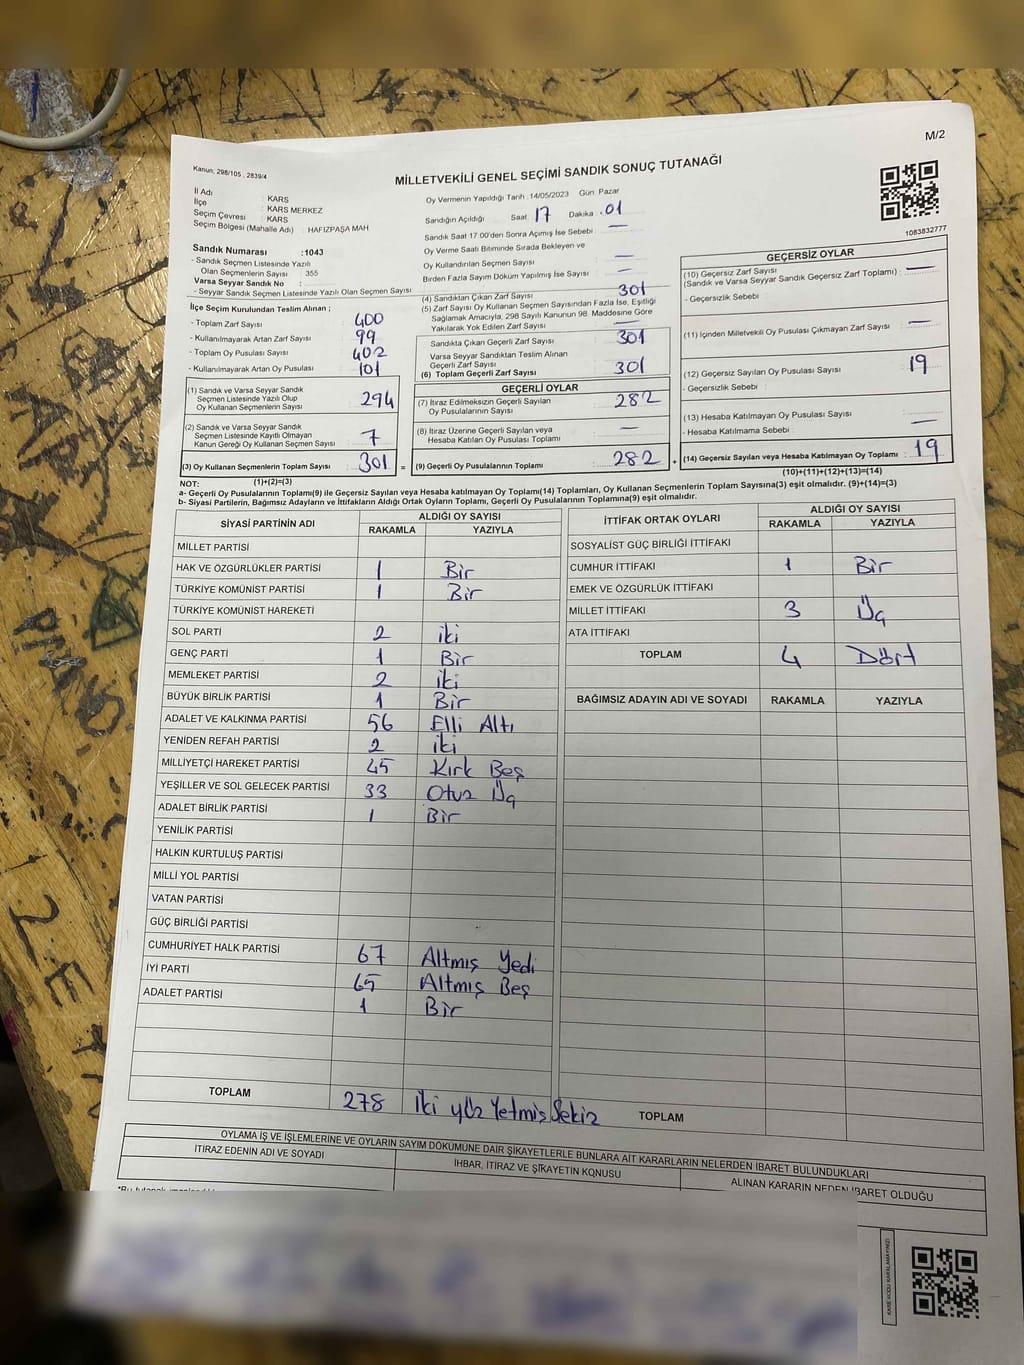 M/2
Kanun, 298/105 , 2839/4
MİLLETVEKİLİ GENEL SEÇİMİ SANDIK SONUÇ TUTANAĞI
1083832777
İl Adı : KARS
İlçe : KARS MERKEZ
Seçim Çevresi : KARS
Seçim Bölgesi (Mahalle Adı) : HAFIZPAŞA MAH
Sandık Numarası :1043
- Sandık Seçmen Listesinde Yazılı
Olan Seçmenlerin Sayısı : 355
Varsa Seyyar Sandık No :
- Seyyar Sandık Seçmen Listesinde Yazılı Olan Seçmen Sayısı
İlçe Seçim Kurulundan Teslim Alınan ;
- Toplam Zarf Sayısı : 400
- Kullanılmayarak Artan Zarf Sayısı : 99
- Toplam Oy Pusulası Sayısı : 402
- Kullanılmayarak Artan Oy Pusulası : 101
(1) Sandık ve Varsa Seyyar Sandık
Seçmen Listesinde Yazılı Olup
Oy Kullanan Seçmenlerin Sayısı : 294
(2) Sandık ve Varsa Seyyar Sandık
Seçmen Listesinde Kayıtlı Olmayan
Kanun Gereği Oy Kullanan Seçmen Sayısı : 7
(3) Oy Kullanan Seçmenlerin Toplam Sayısı : 301 =
(1)+(2)=(3)
Oy Vermenin Yapıldığı Tarih :14/05/2023 Gün Pazar
Sandığın Açıldığı Saat 17 Dakika .01
Sandık Saat 17:00'den Sonra Açımış İse Sebebi : —
Oy Verme Saati Bitiminde Sırada Bekleyen ve
Oy Kullandırılan Seçmen Sayısı : —
Birden Fazla Sayım Döküm Yapılmış İse Sayısı : —
(4) Sandıktan Çıkan Zarf Sayısı : 301
(5) Zarf Sayısı Oy Kullanan Seçmen Sayısından Fazla İse, Eşitliği
Sağlamak Amacıyla, 298 Sayılı Kanunun 98. Maddesine Göre
Yakılarak Yok Edilen Zarf Sayısı : —
Sandıkta Çıkan Geçerli Zarf Sayısı : 301
Varsa Seyyar Sandıktan Teslim Alınan
Geçerli Zarf Sayısı :
(6) Toplam Geçerli Zarf Sayısı : 301
GEÇERLİ OYLAR
(7) İtiraz Edilmeksizin Geçerli Sayılan
Oy Pusulalarının Sayısı : 282
(8) İtiraz Üzerine Geçerli Sayılan veya
Hesaba Katılan Oy Pusulası Toplamı : —
(9) Geçerli Oy Pusulalarının Toplamı : 282 +
GEÇERSİZ OYLAR
(10) Geçersiz Zarf Sayısı
(Sandık ve Varsa Seyyar Sandık Geçersiz Zarf Toplamı) : —
- Geçersizlik Sebebi
(11) İçinden Milletvekili Oy Pusulası Çıkmayan Zarf Sayısı : —
(12) Geçersiz Sayılan Oy Pusulası Sayısı : 19
- Geçersizlik Sebebi :
(13) Hesaba Katılmayan Oy Pusulası Sayısı : —
- Hesaba Katılmama Sebebi :
(14) Geçersiz Sayılan veya Hesaba Katılmayan Oy Toplamı : 19
(10)+(11)+(12)+(13)=(14)
NOT:
a- Geçerli Oy Pusulalarının Toplamı(9) ile Geçersiz Sayılan veya Hesaba katılmayan Oy Toplamı(14) Toplamları, Oy Kullanan Seçmenlerin Toplam Sayısına(3) eşit olmalıdır. (9)+(14)=(3)
b- Siyasi Partilerin, Bağımsız Adayların ve İttifakların Aldığı Ortak Oyların Toplamı, Geçerli Oy Pusulalarının Toplamına(9) eşit olmalıdır.
SİYASİ PARTİNİN ADI ALDIĞI OY SAYISI
RAKAMLA YAZIYLA
MİLLET PARTİSİ
HAK VE ÖZGÜRLÜKLER PARTİSİ 1 Bir
TÜRKİYE KOMÜNİST PARTİSİ 1 Bir
TÜRKİYE KOMÜNİST HAREKETİ
SOL PARTİ 2 iki
GENÇ PARTİ 1 Bir
MEMLEKET PARTİSİ 2 iki
BÜYÜK BİRLİK PARTİSİ 1 Bir
ADALET VE KALKINMA PARTİSİ 56 Elli Altı
YENİDEN REFAH PARTİSİ 2 iki
MİLLİYETÇİ HAREKET PARTİSİ 45 Kırk Beş
YEŞİLLER VE SOL GELECEK PARTİSİ 33 Otuz Üç
ADALET BİRLİK PARTİSİ 1 Bir
YENİLİK PARTİSİ
HALKIN KURTULUŞ PARTİSİ
MİLLİ YOL PARTİSİ
VATAN PARTİSİ
GÜÇ BİRLİĞİ PARTİSİ
CUMHURİYET HALK PARTİSİ 67 Altmış Yedi
İYİ PARTİ 65 Altmış Beş
ADALET PARTİSİ 1 Bir
TOPLAM 278 İki yüz Yetmiş Sekiz
İTTİFAK ORTAK OYLARI ALDIĞI OY SAYISI
RAKAMLA YAZIYLA
SOSYALİST GÜÇ BİRLİĞİ İTTİFAKI
CUMHUR İTTİFAKI 1 Bir
EMEK VE ÖZGÜRLÜK İTTİFAKI
MİLLET İTTİFAKI 3 Üç
ATA İTTİFAKI
TOPLAM 4 Dört
BAĞIMSIZ ADAYIN ADI VE SOYADI RAKAMLA YAZIYLA
TOPLAM
OYLAMA İŞ VE İŞLEMLERİNE VE OYLARIN SAYIM DÖKÜMÜNE DAİR ŞİKAYETLERLE BUNLARA AİT KARARLARIN NELERDEN İBARET BULUNDUKLARI
İTİRAZ EDENİN ADI VE SOYADI İHBAR, İTİRAZ VE ŞİKAYETİN KONUSU ALINAN KARARIN NEDEN İBARET OLDUĞU
KARE KODU KARALAMAYINIZ!